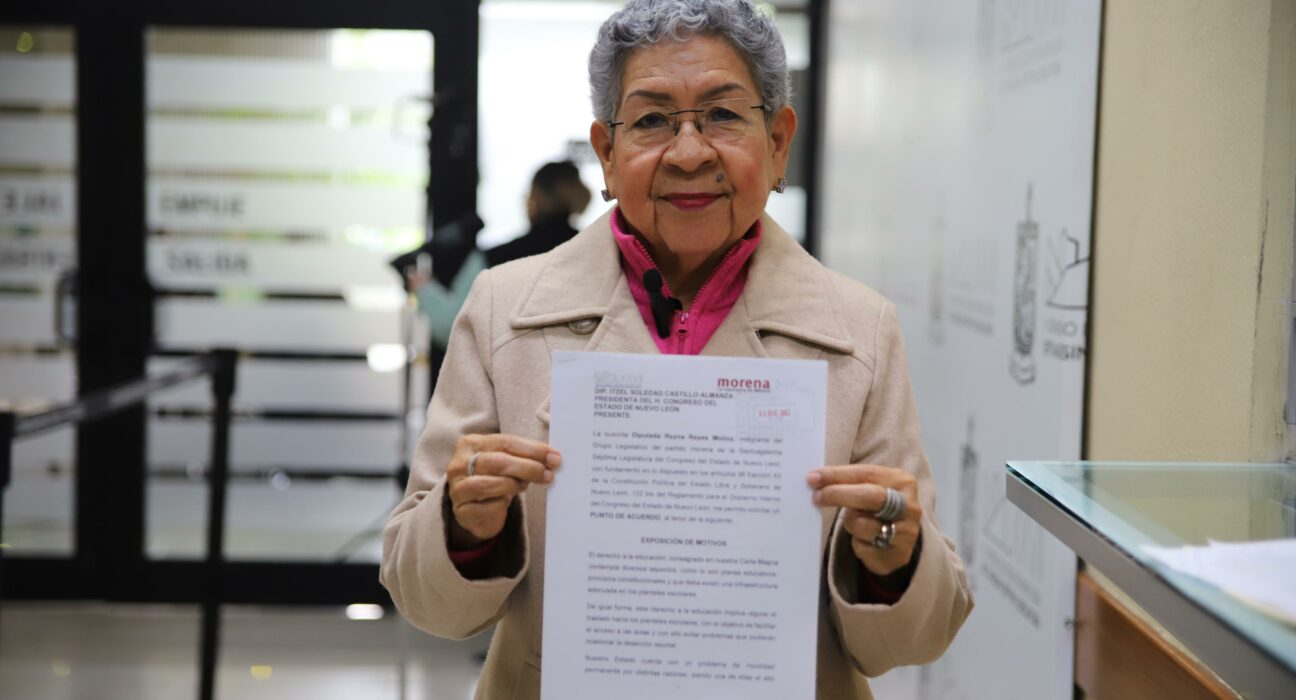 EMPUJE
SALIDA
LXXVII
morena
La esperanza de México
DIP. ITZEL SOLEDAD CASTILLO ALMANZA
PRESIDENTA DEL H. CONGRESO DEL
ESTADO DE NUEVO LEÓN
PRESENTE.
La suscrita Diputada Reyna Reyes Molina, integrante del
Grupo Legislativo del partido morena de la Septuagésima
Séptima Legislatura del Congreso del Estado de Nuevo León,
con fundamento en lo dispuesto en los artículos 96 fracción XII
de la Constitución Política del Estado Libre y Soberano de
Nuevo León, 122 bis del Reglamento para el Gobierno Interior
del Congreso del Estado de Nuevo León, me permito solicitar un
PUNTO DE ACUERDO, al tenor de la siguiente:
EXPOSICIÓN DE MOTIVOS
El derecho a la educación, consagrado en nuestra Carta Magna
contempla diversos aspectos, como lo son planes educativos,
principios constitucionales y que deba existir una infraestructura
adecuada en los planteles escolares.
De igual forma, este derecho a la educación implica regular el
traslado hacia los planteles escolares, con el objetivo de facilitar
el acceso a las aulas y con ello evitar problemas que pudieran
ocasionar la deserción escolar.
Nuestro Estado cuenta con un problema de movilidad
permanente por distintas razones, siendo una de ellas el ello